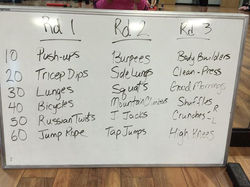 Rd 1 Rd 2 Rd 3
10 Push-ups Burpees Body Builders
20 Tricep Dips Side Lungs Clean-Press
30 Lunges Squats Good Mornings
40 Bicycles Mountain Climbers Shuffles
50 Russian Twists J Jacks Crunches R-L
60 Jump Rope Tap Jumps High Knees